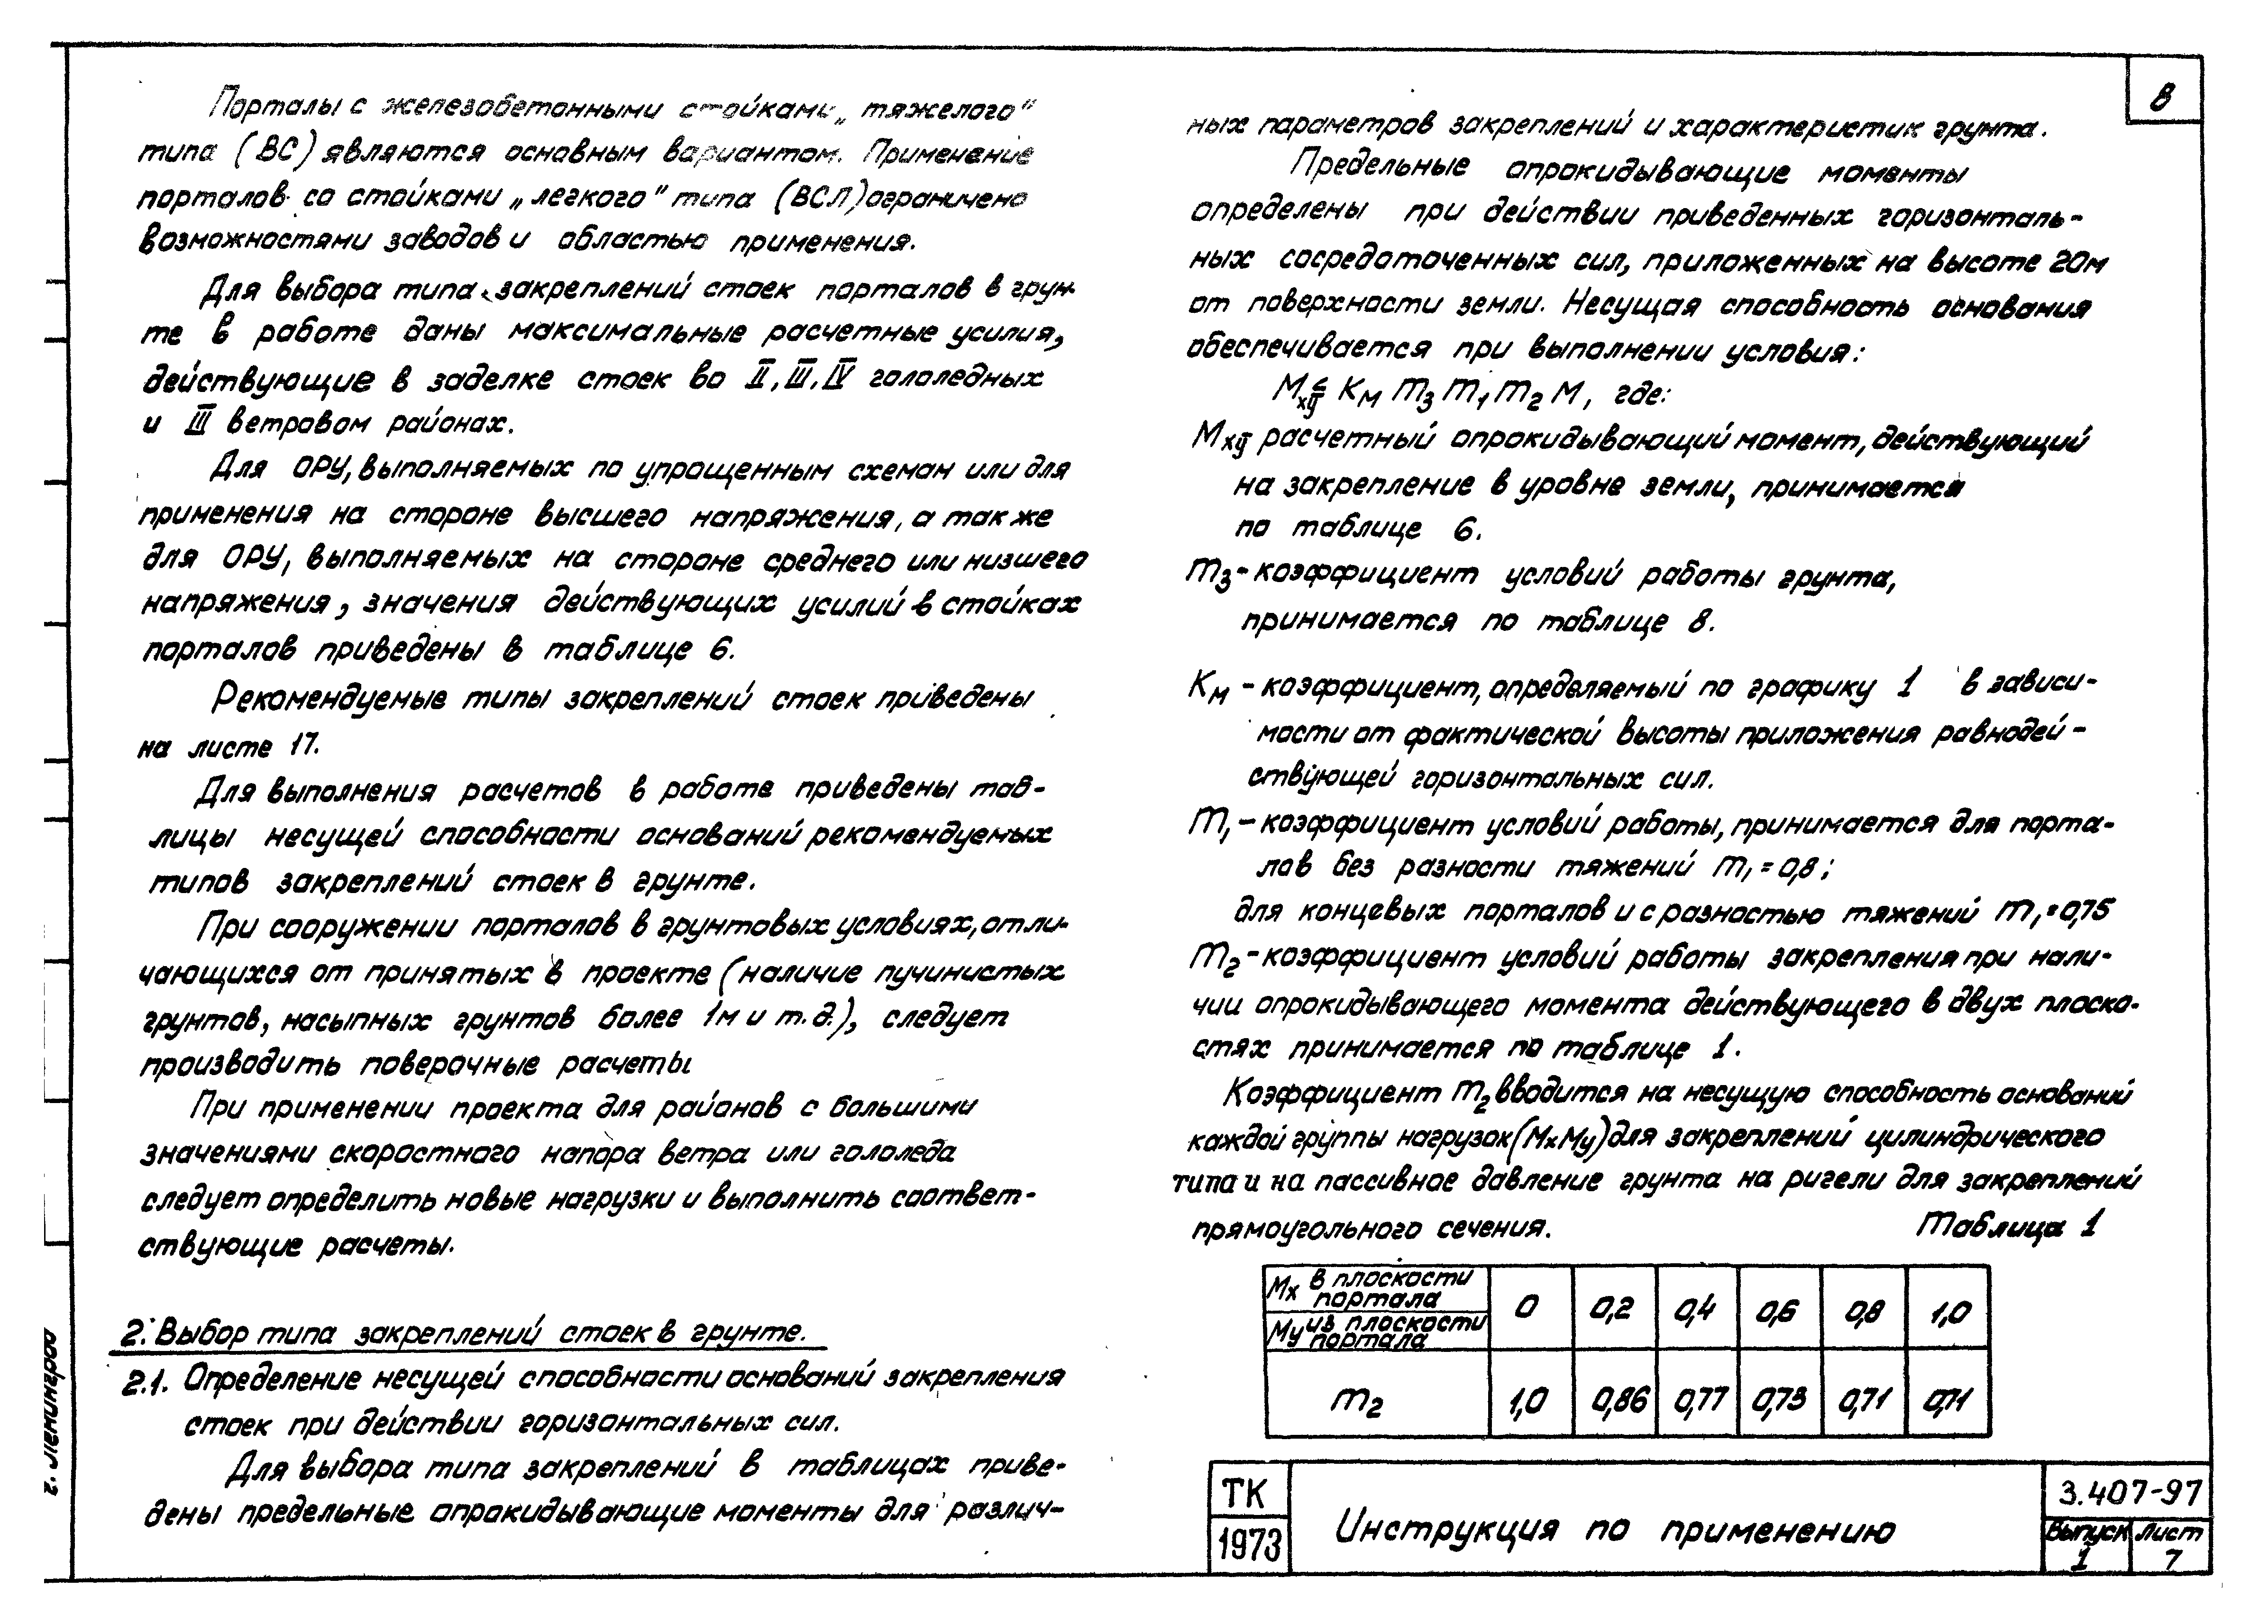 8
Порталы с железобетонными стойками „тяжелого"
типа (ВС) являются основным вариантом. Применение
порталов со стойками „легкого" типа (ВСЛ) ограничено
возможностями заводов и областью применения.
Для выбора типа закреплений стоек порталов в грун-
те в работе даны максимальные расчетные усилия,
действующие в заделке стоек во II, III, IV гололедных
и III ветровом районах.
Для ОРУ, выполняемых по упрощенным схемам или для
применения на стороне высшего напряжения, а также
для ОРУ, выполняемых на стороне среднего или низшего
напряжения, значения действующих усилий в стойках
порталов приведены в таблице 6.
Рекомендуемые типы закреплений стоек приведены
на листе 17.
Для выполнения расчетов в работе приведены таб-
лицы несущей способности оснований рекомендуемых
типов закреплений стоек в грунте.
При сооружении порталов в грунтовых условиях, отли-
чающихся от принятых в проекте (наличие пучинистых
грунтов, насыпных грунтов более 1м и т.д.), следует
производить поверочные расчеты
При применении проекта для районов с большими
значениями скоростного напора ветра или гололеда
следует определить новые нагрузки и выполнить соответ-
ствующие расчеты.
2. Выбор типа закреплений стоек в грунте.
2.1. Определение несущей способности оснований закрепления
стоек при действии горизонтальных сил.
Для выбора типа закреплений в таблицах приве-
дены предельные опрокидывающие моменты для различ-
ных параметров закреплений и характеристик грунта.
Предельные опрокидывающие моменты
определены при действии приведенных горизонталь-
ных сосредоточенных сил, приложенных на высоте 20м
от поверхности земли. Несущая способность основания
обеспечивается при выполнении условия:
Mxy ≤ Kм m3 m1 m2 M, где:
Mxy- расчетный опрокидывающий момент, действующий
на закрепление в уровне земли, принимается
по таблице 6.
m3- коэффициент условий работы грунта,
принимается по таблице 8.
Kм - коэффициент, определяемый по графику 1 в зависи-
мости от фактической высоты приложения равнодей-
ствующей горизонтальных сил.
m1 - коэффициент условий работы, принимается для порта-
лов без разности тяжений m1 = 0,8;
для концевых порталов и с разностью тяжений m1 = 0,75
m2 - коэффициент условий работы закрепления при нали-
чии опрокидывающего момента действующего в двух плоско-
стях принимается по таблице 1.
Коэффициент m2 вводится на несущую способность оснований
каждой группы нагрузок (Mx My) для закреплений цилиндрического
типа и на пассивное давление грунта на ригели для закреплений
прямоугольного сечения.
Таблица 1
Mx в плоскости портала
My из плоскости портала
0 0,2 0,4 0,6 0,8 1,0
m2 1,0 0,86 0,77 0,73 0,71 0,71
ТК
1973
Инструкция по применению
3.407-97
Выпуск 1
Лист 7
г. Ленинград